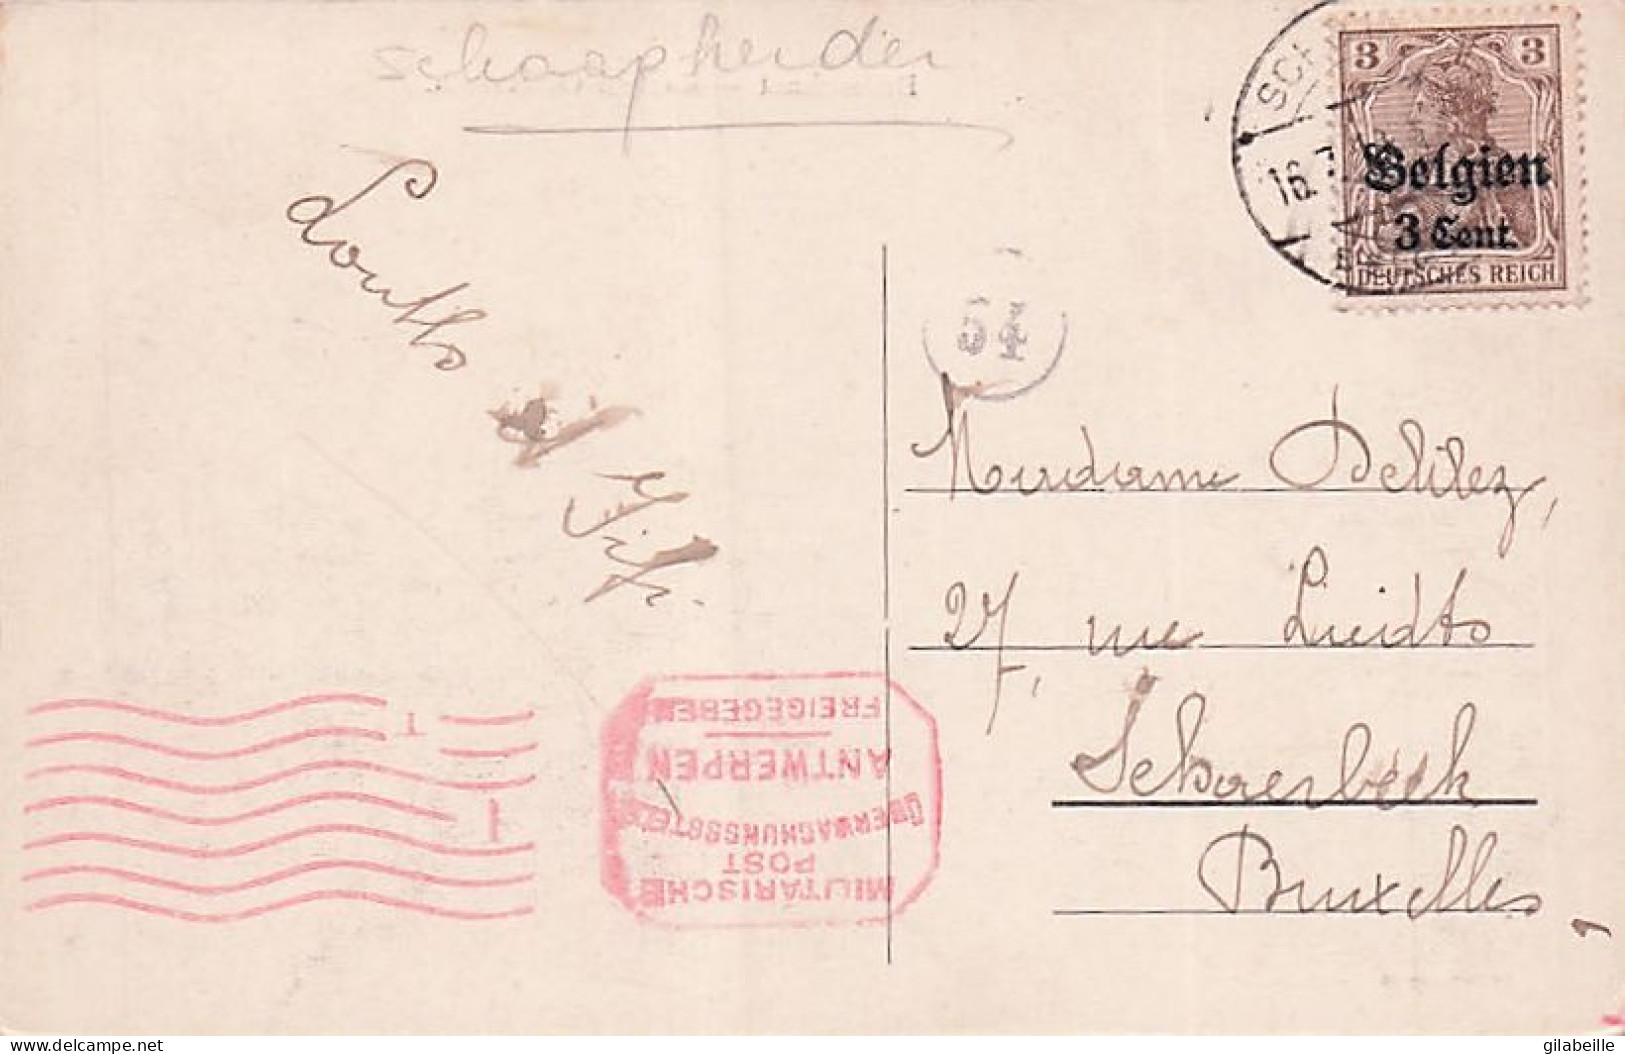 schaapherder
3 3
Belgien
3 Cent.
DEUTSCHES REICH
SCH
16.
54
Madame Delilez,
27, rue Liedts
Schaerbeek
Bruxelles
MILITÄRISCHE
POST
ÜBERWACHUNGSSTELLE
ANTWERPEN
FREIGEGEBEN
delcampe.net
gilabeille